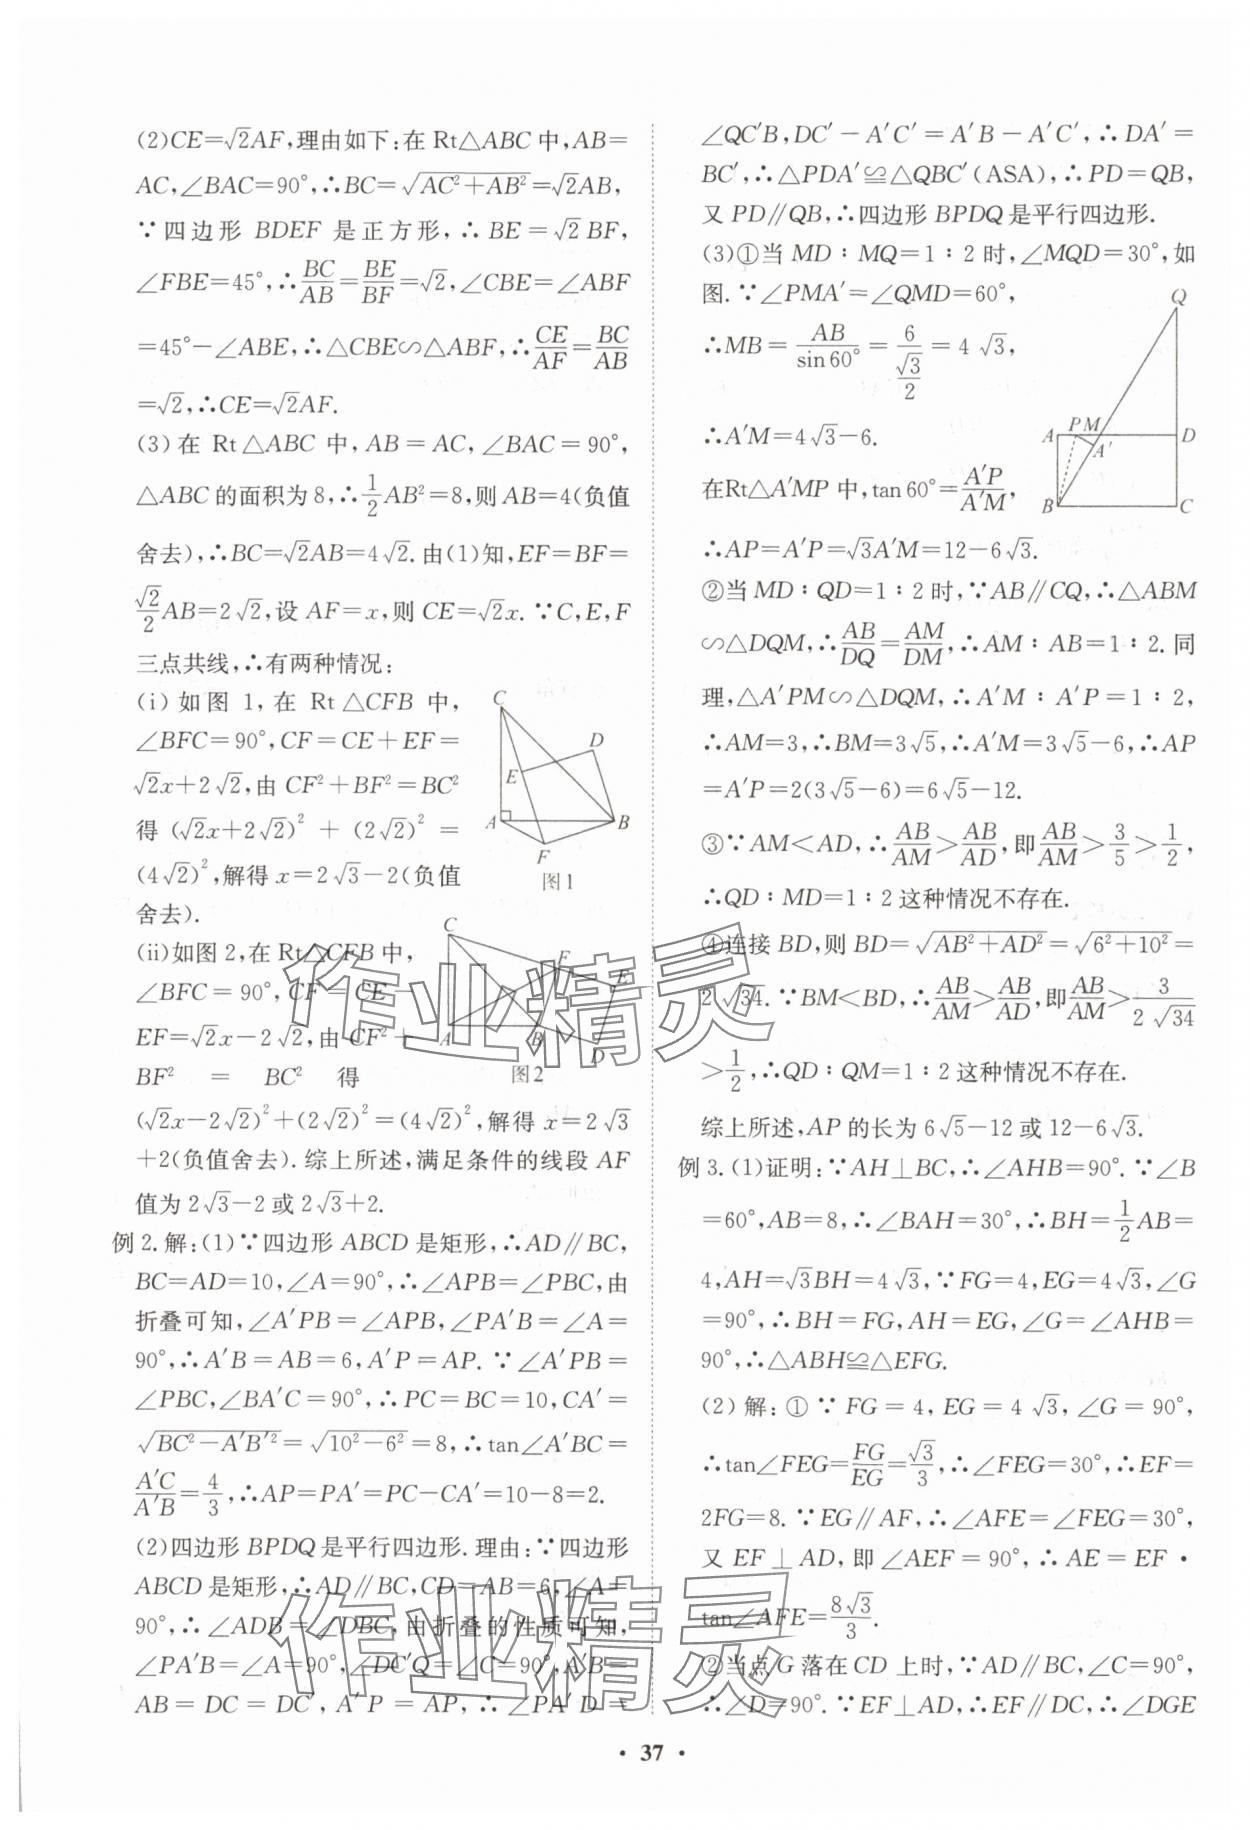 (2)CE=√2AF,理由如下:在 Rt△ABC 中,AB=
AC,∠BAC=90°,∴BC=√(AC²+AB²)=√2AB,
∵四边形 BDEF 是正方形,∴BE=√2BF,
∠FBE=45°,∴BC/AB=BE/BF=√2,∠CBE=∠ABF
=45°-∠ABE,∴△CBE∽△ABF,∴CE/AF=BC/AB
=√2,∴CE=√2AF.
(3)在 Rt△ABC 中,AB=AC,∠BAC=90°,
△ABC 的面积为 8,∴1/2AB²=8,则 AB=4(负值
舍去),∴BC=√2AB=4√2. 由(1)知,EF=BF=
√2/2AB=2√2,设 AF=x,则 CE=√2x. ∵C,E,F
三点共线,∴有两种情况:
(i)如图 1,在 Rt△CFB 中,
∠BFC=90°,CF=CE+EF=
√2x+2√2,由 CF²+BF²=BC²
得 (√2x+2√2)²+(2√2)²=
(4√2)²,解得 x=2√3-2(负值
舍去).
C
D
E
A
B
F
图1
(ii)如图 2,在 Rt△CFB 中,
∠BFC=90°,CF=CE-
EF=√2x-2√2,由 CF²+
BF²=BC² 得
C
F
E
A
B
D
图2
(√2x-2√2)²+(2√2)²=(4√2)²,解得 x=2√3
+2(负值舍去). 综上所述,满足条件的线段 AF
值为 2√3-2 或 2√3+2.
例 2.解:(1)∵四边形 ABCD 是矩形,∴AD∥BC,
BC=AD=10,∠A=90°,∴∠APB=∠PBC,由
折叠可知,∠A′PB=∠APB,∠PA′B=∠A=
90°,∴A′B=AB=6,A′P=AP. ∵∠A′PB=
∠PBC,∠BA′C=90°,∴PC=BC=10,CA′=
√(BC²-A′B′²)=√(10²-6²)=8,∴tan∠A′BC=
A′C/A′B=4/3,∴AP=PA′=PC-CA′=10-8=2.
(2)四边形 BPDQ 是平行四边形.理由:∵四边形
ABCD 是矩形,∴AD∥BC,CD=AB=6,∠A=
90°,∴∠ADB=∠DBC,由折叠的性质可知,
∠PA′B=∠A=90°,∠DC′Q=∠C=90°,A′B=
AB=DC=DC′,A′P=AP,∴∠PA′D=
∠QC′B,DC′-A′C′=A′B-A′C′,∴DA′=
BC′,∴△PDA′≌△QBC′(ASA),∴PD=QB,
又 PD∥QB,∴四边形 BPDQ 是平行四边形.
(3)①当 MD∶MQ=1∶2 时,∠MQD=30°,如
图.∵∠PMA′=∠QMD=60°,
∴MB=AB/sin60°=6/(√3/2)=4√3,
∴A′M=4√3-6.
在Rt△A′MP 中,tan60°=A′P/A′M,
Q
A
P
M
D
A′
B
C
∴AP=A′P=√3A′M=12-6√3.
②当 MD∶QD=1∶2 时,∵AB∥CQ,∴△ABM
∽△DQM,∴AB/DQ=AM/DM,∴AM∶AB=1∶2. 同
理,△A′PM∽△DQM,∴A′M∶A′P=1∶2,
∴AM=3,∴BM=3√5,∴A′M=3√5-6,∴AP
=A′P=2(3√5-6)=6√5-12.
③∵AM<AD,∴AB/AM>AB/AD,即AB/AM>3/5>1/2,
∴QD∶MD=1∶2 这种情况不存在.
④连接 BD,则 BD=√(AB²+AD²)=√(6²+10²)=
2√34. ∵BM<BD,∴AB/AM>AB/AD,即AB/AM>3/(2√34)
>1/2,∴QD∶QM=1∶2 这种情况不存在.
综上所述,AP 的长为 6√5-12 或 12-6√3.
例 3.(1)证明:∵AH⊥BC,∴∠AHB=90°. ∵∠B
=60°,AB=8,∴∠BAH=30°,∴BH=1/2AB=
4,AH=√3BH=4√3,∵FG=4,EG=4√3,∠G
=90°,∴BH=FG,AH=EG,∠G=∠AHB=
90°,∴△ABH≌△EFG.
(2)解:①∵FG=4,EG=4√3,∠G=90°,
∴tan∠FEG=FG/EG=√3/3,∴∠FEG=30°,∴EF=
2FG=8. ∵EG∥AF,∴∠AFE=∠FEG=30°,
又 EF⊥AD,即∠AEF=90°,∴AE=EF·
tan∠AFE=8√3/3.
②当点 G 落在 CD 上时,∵AD∥BC,∠C=90°,
∴∠D=90°. ∵EF⊥AD,∴EF∥DC,∴∠DGE
作业精灵
作业精灵
· 37 ·